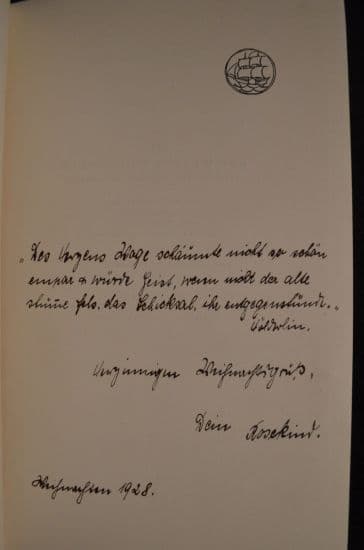 „Des Herzens Woge schäumte nicht so schön
empor & würde Geist, wenn nicht der alte
stumme Fels, das Schicksal, ihr entgegenstünde.“
Hölderlin.
Herzinnigen Weihnachtsgruß,
Dein Rosekind.
Weihnachten 1928.